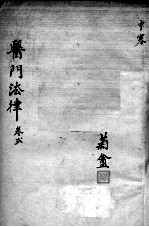 中卷
菊盦
醫門法律 卷五